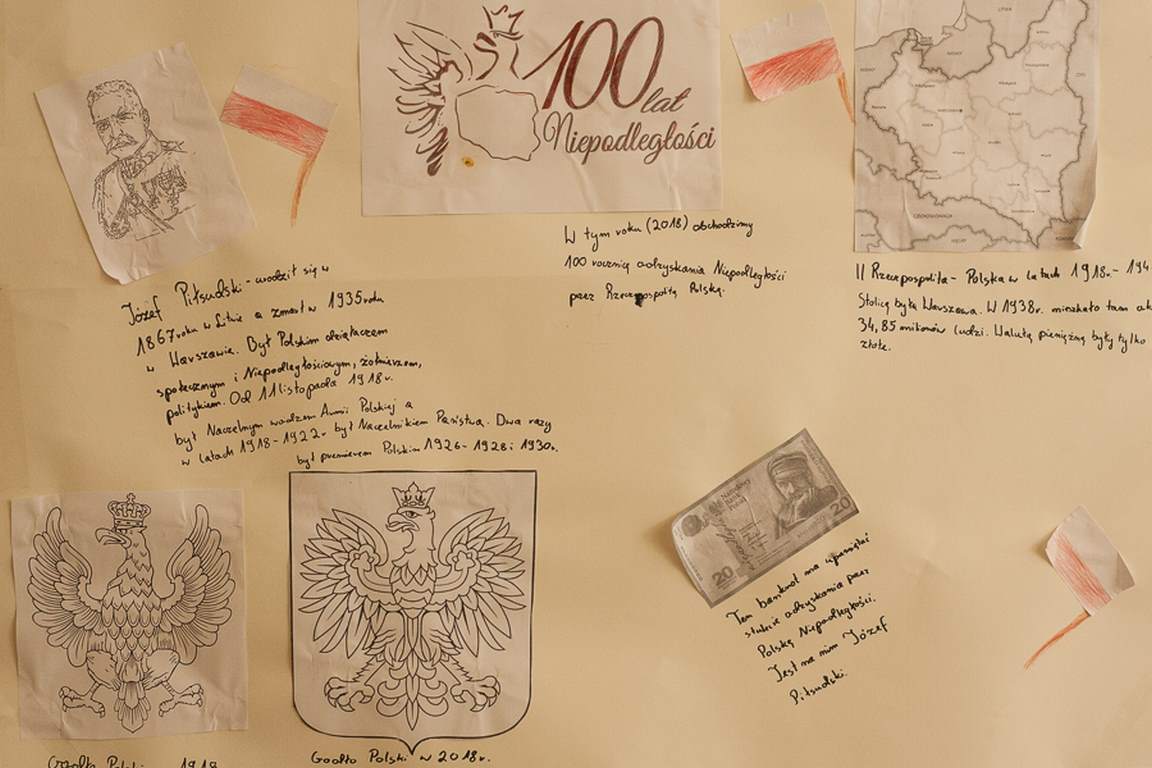 100 lat
Niepodległości
W tym roku (2018) obchodzimy
100 rocznicę odzyskania Niepodległości
przez Rzeczpospolitą Polską.
II Rzeczpospolita - Polska w latach 1918r. - 194
Stolicą była Warszawa. W 1938r. mieszkało tam ok
34,85 milionów ludzi. Walutą pieniężną były tylko
złote.
Józef Piłsudski - urodził się w
1867 roku w Litwie a zmarł w 1935 roku
w Warszawie. Był Polskim działaczem
społecznym i Niepodległościowym, żołnierzem,
politykiem. Od 11 listopada 1918r.
był Naczelnym wodzem Armii Polskiej a
w latach 1918-1922r był Naczelnikiem Państwa. Dwa razy
był premierem Polskim 1926-1928 i 1930r.
Narodowy
Bank
Polski
20
20
Ten banknot ma upamiętnić
stulecie odzyskania przez
Polskę Niepodległości.
Jest na nim Józef
Piłsudski.
Godło Polski 1918
Godło Polski w 2018r.
CZECHOSŁOWACJA